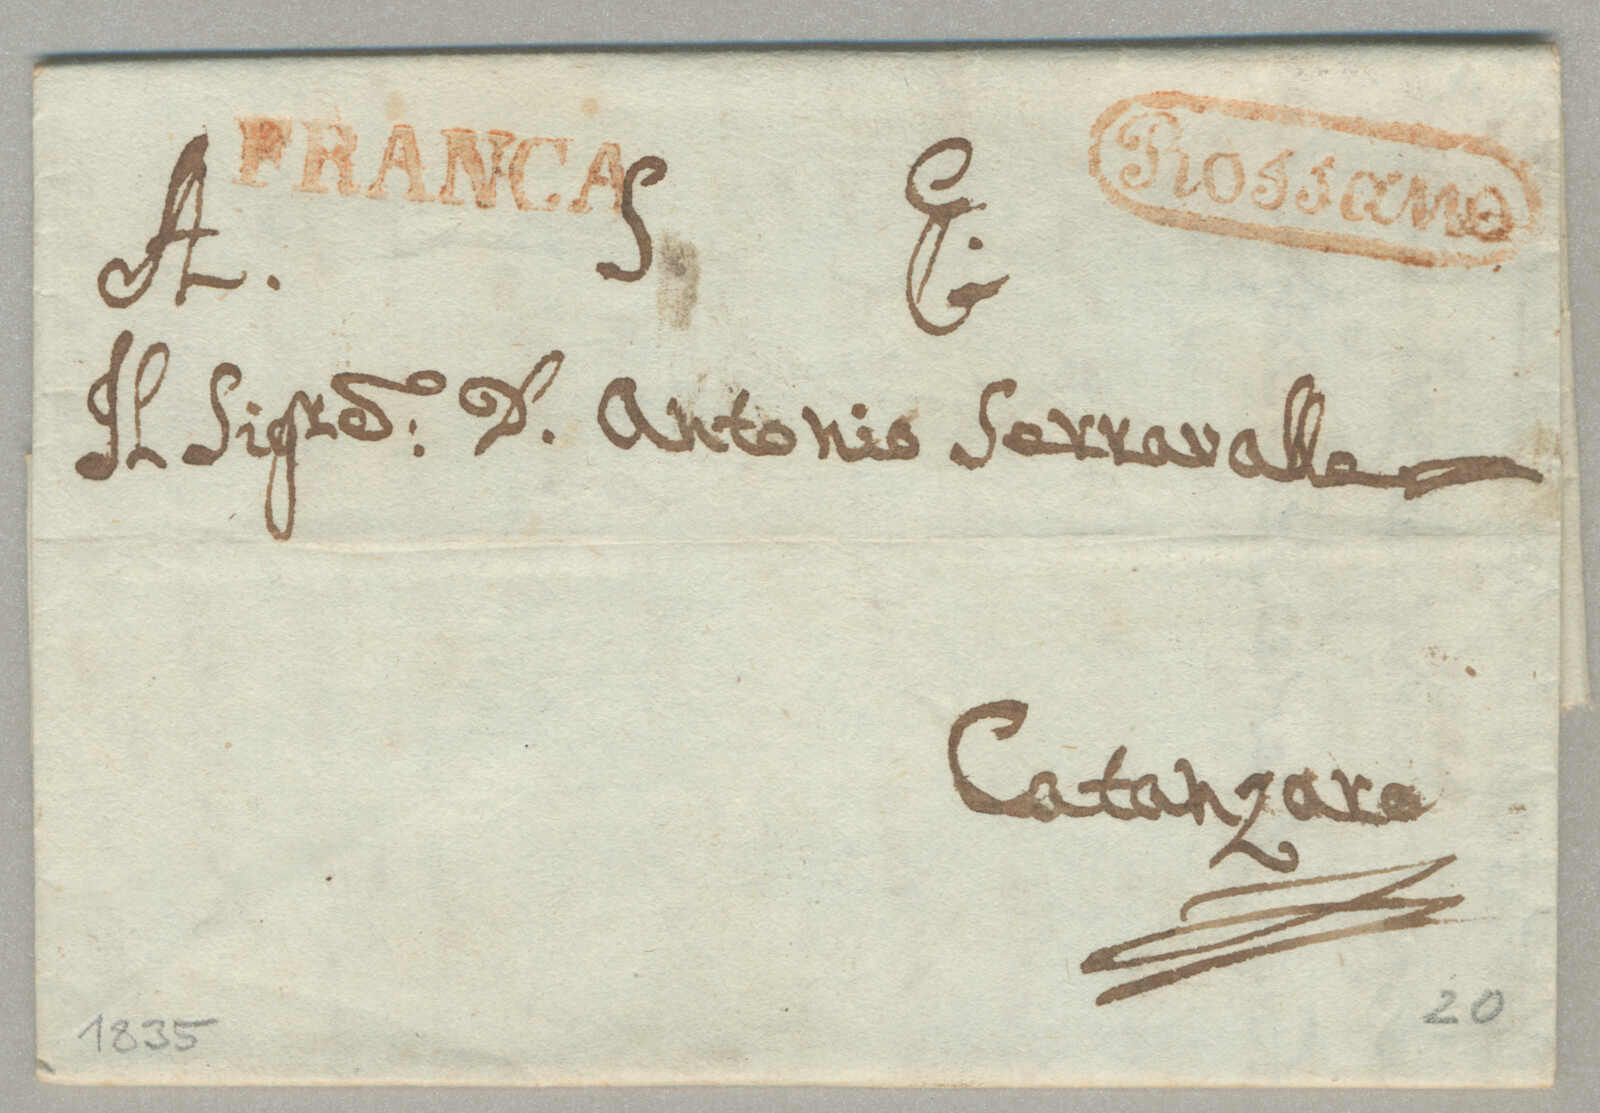 FRANCA
Rossano
A. S. E.
Il Sigre. D. Antonio Serravalle
Catanzaro
1835
20